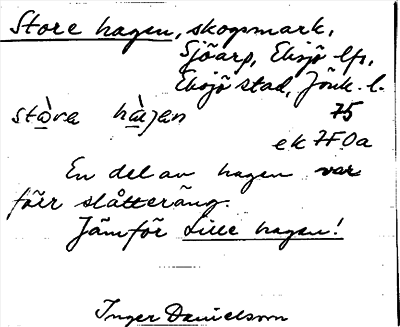 Store hagen, skogsmark,
Sjöarp, Eksjö lfs,
Eksjö stad, Jönk. l.
stòra hàgen 75
ek 7F0a
En del av hagen var
förr slåtteräng.
Jämför Lille hagen!
Inger Danielsson